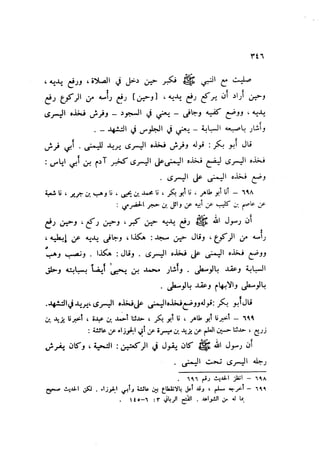 ٣٤٦
صليت مع النبي ﷺ فكبر حين دخل في الصلاة، ورفع يديه،
وحين أراد أن يركع رفع يديه، [وحين] رفع رأسه من الركوع رفع
يديه، ووضع كفيه وجافى – يعني في السجود – وفرش فخذه اليسرى
وأشار بأصبعه السبابة – يعني في الجلوس في التشهد – .
قال أبو بكر: قوله وفرش فخذه اليسرى يريد لليمنى. أي فرش
فخذه اليسرى ليضع فخذه اليمنى على اليسرى كخبر آدم بن أبي اياس:
وضع فخذه اليمنى على اليسرى.
٦٩٨ – أنا أبو طاهر، نا أبو بكر، نا محمد بن يحيى، نا وهب بن جرير، نا شعبة
عن عاصم بن كليب عن أبيه عن وائل بن حجر الحضرمي:
أن رسول الله ﷺ رفع يديه حين كبر، وحين ركع، وحين رفع
رأسه من الركوع، وقال حين سجد: هكذا، وجافى يديه عن إبطيه،
ووضع فخذه اليمنى على فخذه اليسرى. وقال: هكذا. ونصب وهب
السبابة وعقد بالوسطى. وأشار محمد بن يحيى أيضاً بسبابته وحلق
بالوسطى والابهام وعقد بالوسطى.
قال أبو بكر: قوله ووضع فخذه اليمنى على فخذه اليسرى، يريد في التشهد.
٦٩٩ – أخبرنا أبو طاهر، نا أبو بكر، حدثنا أحمد بن عبدة، أخبرنا يزيد بن
زريع، حدثنا حسين المعلم عن بديل بن ميسرة عن أبي الجوزاء عن عائشة:
أن رسول الله ﷺ كان يقول في الركعتين: التحية، وكان يفرش
رجله اليسرى تحت اليمنى.
٦٩٨ – انظر الحديث رقم ٦٩٦.
٦٩٩ – أخرجه مسلم، وقد أعل بالانقطاع بين عائشة وأبي الجوزاء. لكن الحديث صحيح
بما له من الشواهد. الفتح الرباني ٣: ٦–١٤٥.